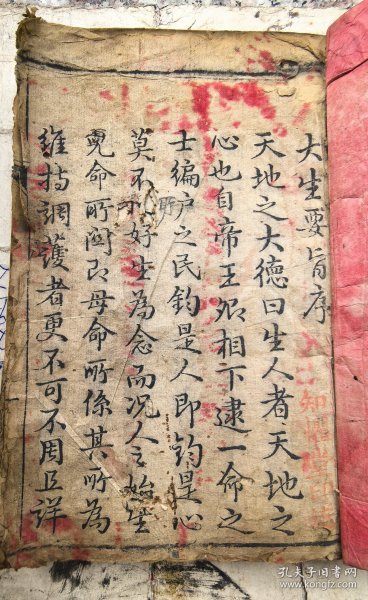 大生要旨序
天地之大德曰生人者天地之
心也自帝王卿相下逮一命之
士編户之民鈞是人即鈞是心
莫不以好生為念而況人之始生
兒命所関即母命所係其所為
維持調護者更不可不周且詳
孔夫子旧书网
www.kongfz.com